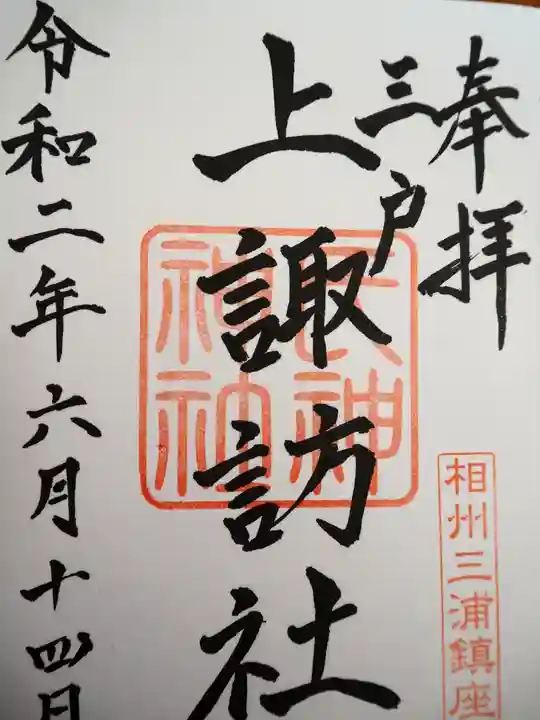 奉拝
三戸
上諏訪社
令和二年六月十四日
相州三浦鎮座